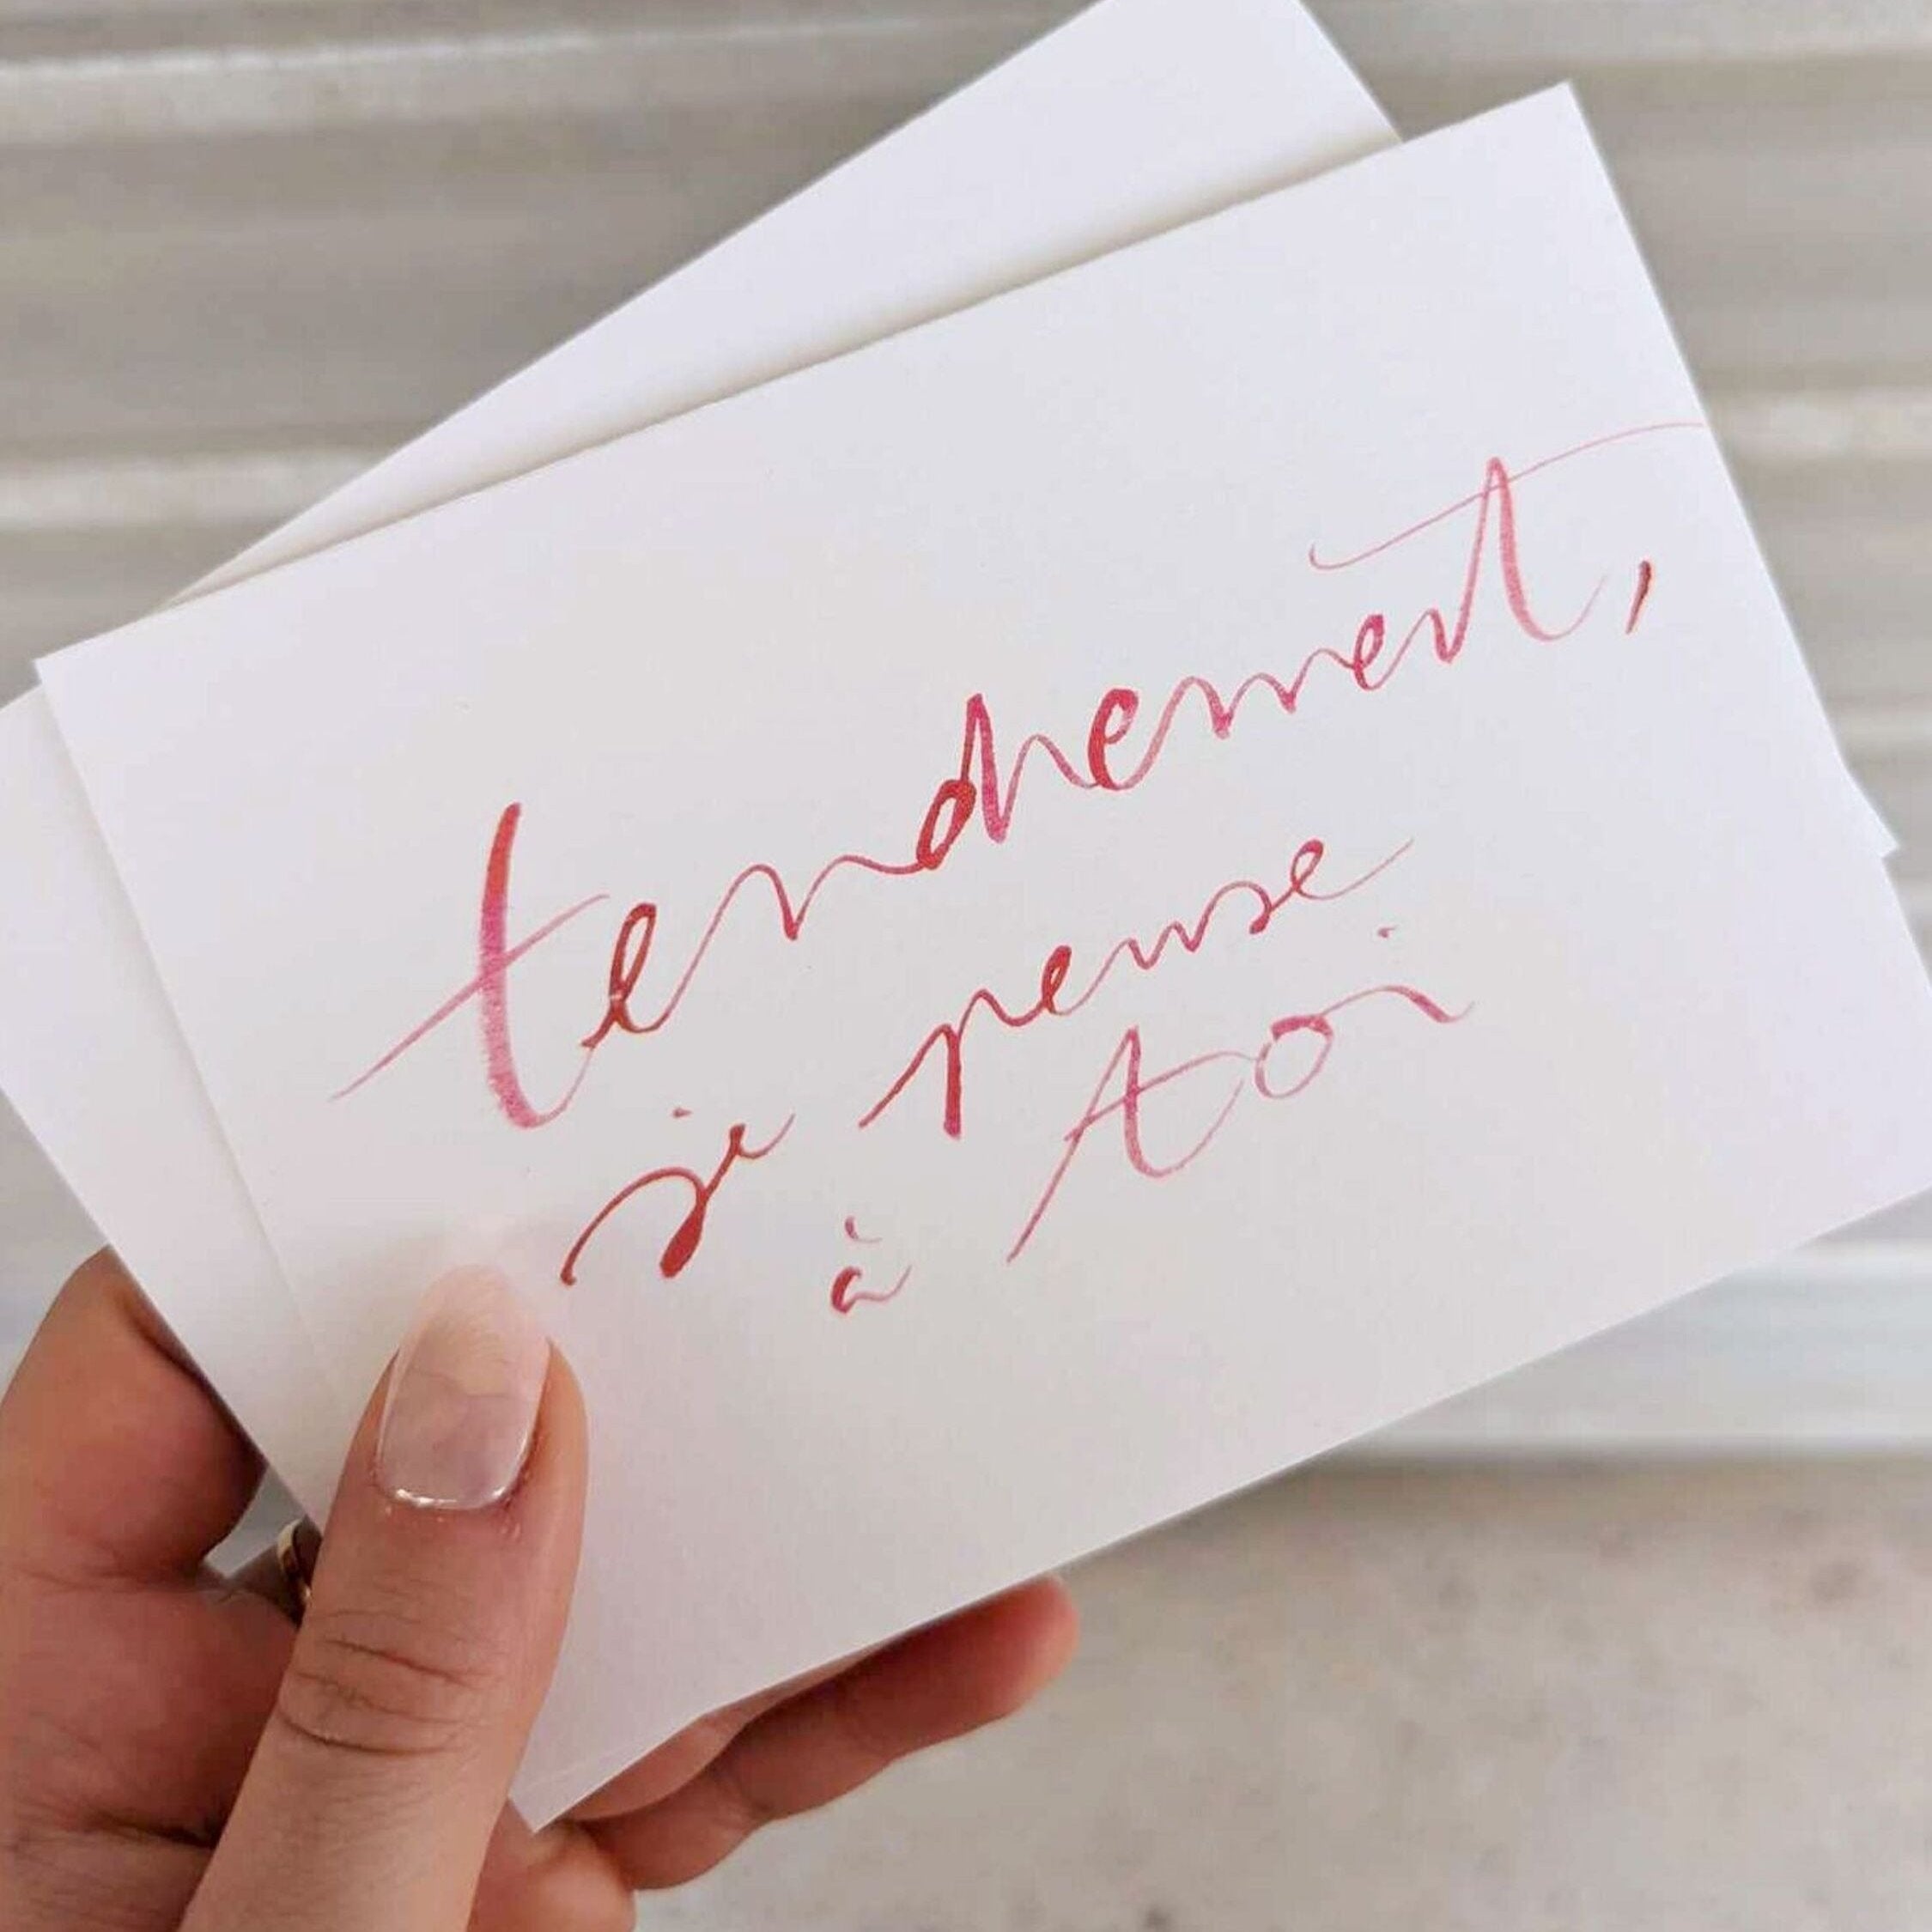 tendrement,
je pense
à toi